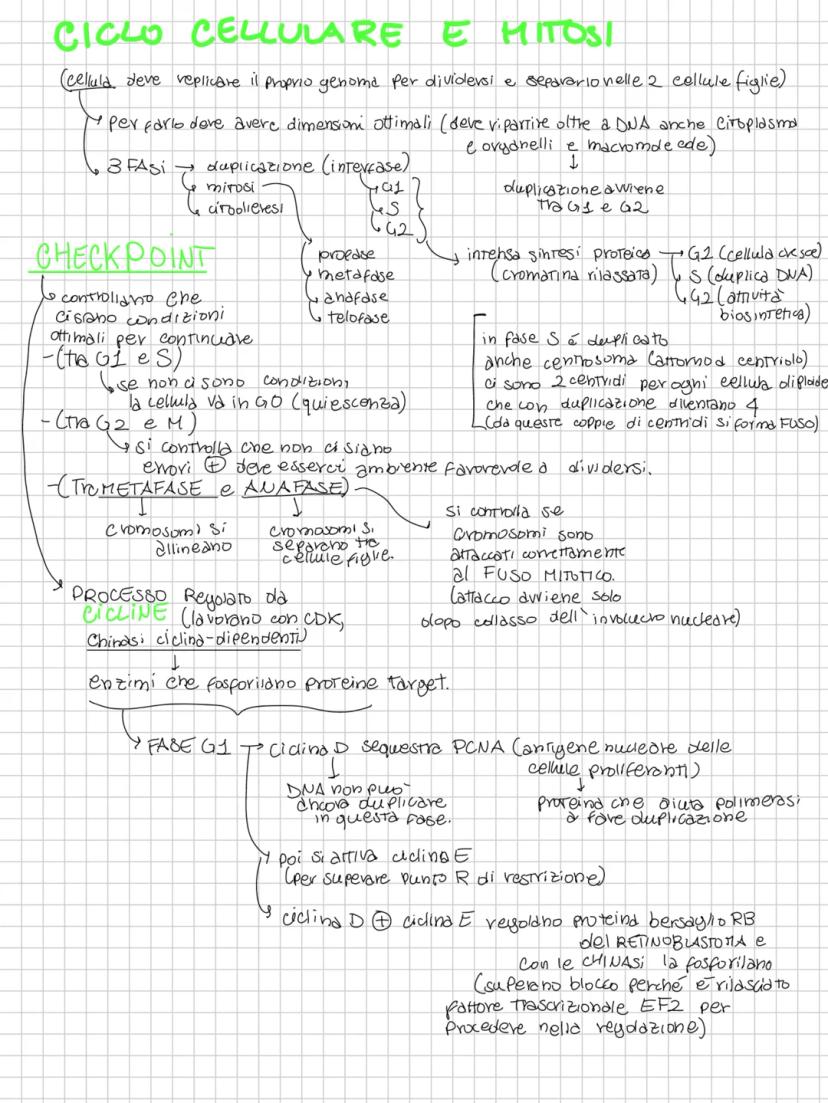 CICLO CELLULARE E MITOSI
(cellula deve replicare il proprio genoma per dividersi e separarlo nelle 2 cellule figlie)
per farlo deve avere dimensioni ottimali (deve ripartire oltre a DNA anche citoplasma
e organelli e macromolecole)
duplicazione avviene
tra G1 e G2
3 FASI → duplicazione (interfase)
mitosi
citochieresi
G1
S
G2
profase
metafase
anafase
telofase
intensa sintesi proteica → G1 (cellula cresce)
(cromatina rilassata)
S (duplica DNA)
G2 (attività
biosintetica)
in fase S è duplicato
anche centrosoma (attorno a centriolo)
ci sono 2 centrioli per ogni cellula diploide
che con duplicazione diventano 4
(da queste coppie di centrioli si forma FUSO)
CHECKPOINT
controllano che
ci siano condizioni
ottimali per continuare
-(tra G1 e S)
se non ci sono condizioni
la cellula va in G0 (quiescenza)
-(tra G2 e M)
si controlla che non ci siano
errori ⊕ deve esserci ambiente favorevole a dividersi.
-(Tra METAFASE e ANAFASE)
cromosomi si
allineano
cromosomi si
separano tra
cellule figlie.
si controlla se
cromosomi sono
attaccati correttamente
al FUSO MITOTICO.
(attacco avviene solo
dopo collasso dell'involucro nucleare)
PROCESSO Regolato da
CICLINE (lavorano con CDK,
Chinasi ciclina-dipendenti)
enzimi che fosforilano proteine target.
FASE G1 → ciclina D sequestra PCNA (antigene nucleare delle
cellule proliferanti)
DNA non può
ancora duplicare
in questa fase.
proteina che aiuta polimerasi
a fare duplicazione
poi si attiva ciclina E
(per superare punto R di restrizione)
ciclina D ⊕ ciclina E regolano proteina bersaglio RB
del RETINOBLASTOMA e
con le CHINASI la fosforilano
(superano blocco perché è rilasciato
fattore trascrizionale EF2 per
procedere nella regolazione)